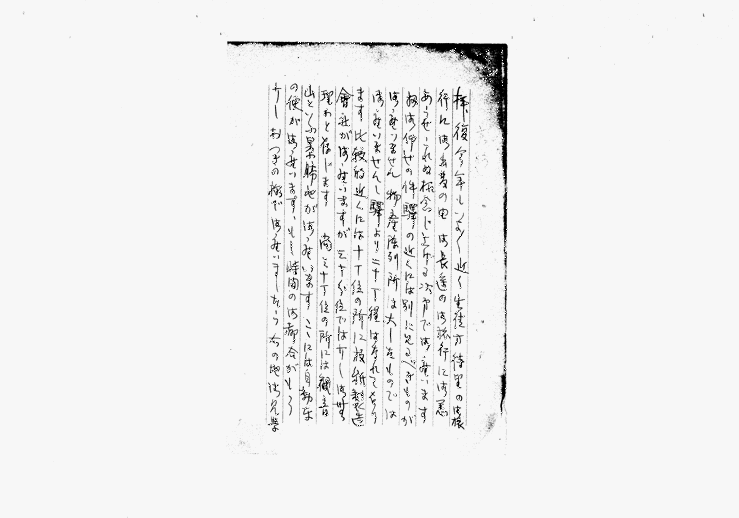 拝復今年もいよ〱近く生徒方待望の御旅
行に御出発の由 御長途の御旅行に御恙
あらせられぬ様念じ上げる次第で御座います
扨御仰せの件 驛の近くには別に見るべきものが
御座いません 物産陳列所は大したものでは
御座いませんし驛より二十丁程はなれて居り
ます 比較的近くには十丁位の所に板紙製造
會社が御座いますが三十分位では少し御無
理かと存じます 尚三十丁位の所には観音
山といふ景勝地が御座います こゝには自動車
の便が御座います、もし時間の御都合がもう
少しおつきの様で御座いましたら右の地御見学